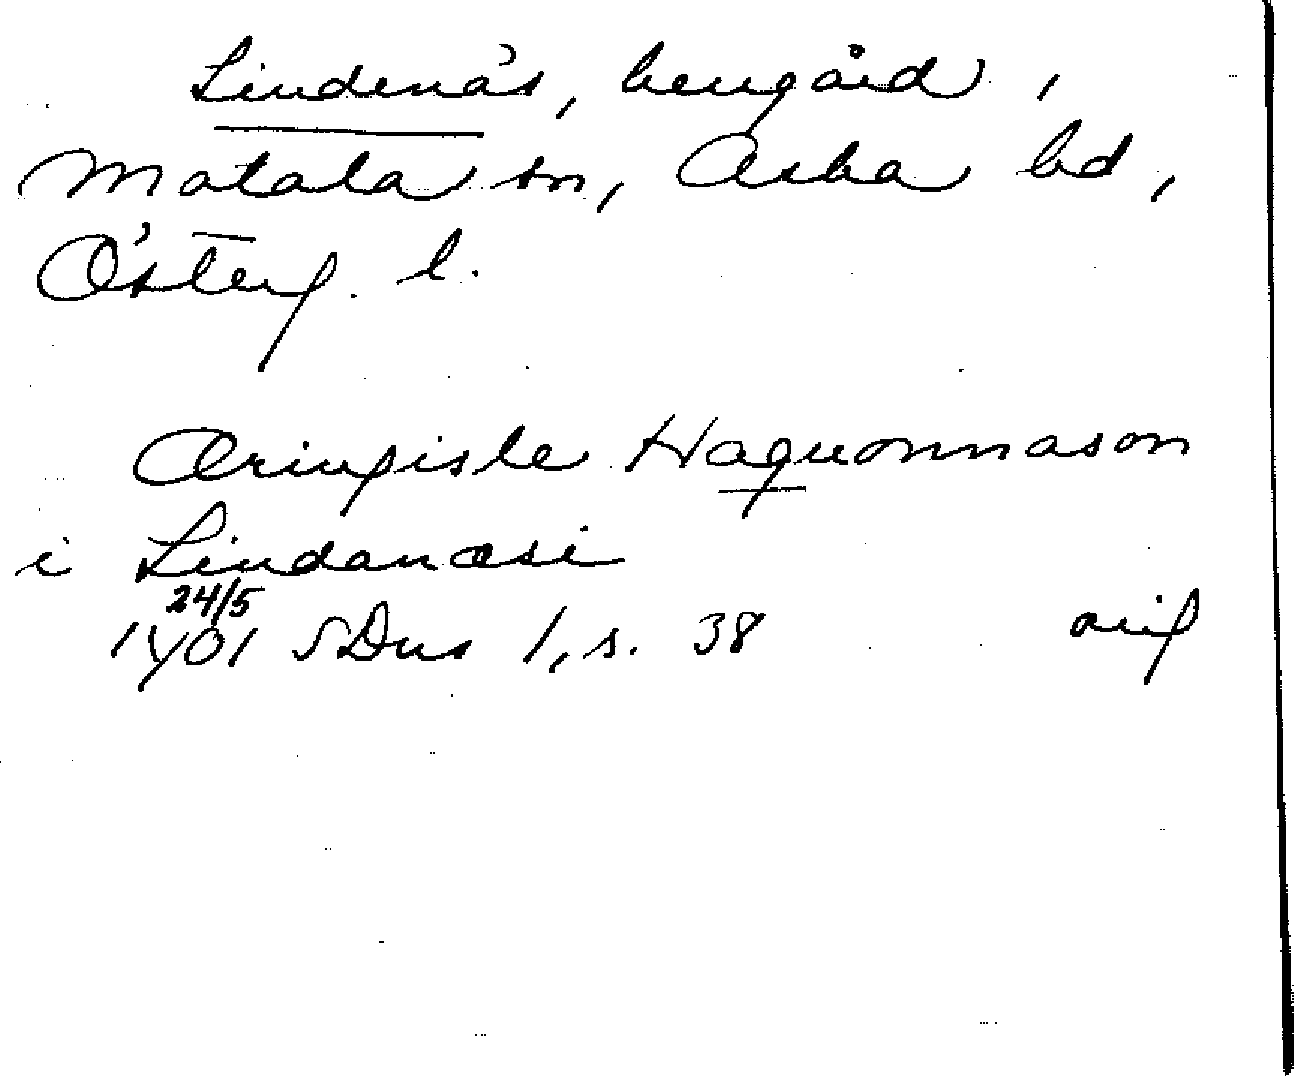 Lindenäs, herrgård,
Motala sn, Aska hd,
Österg. l.
Aringisle Haquonnason
i Lindanæsi
24/5
1401 SDns 1, s. 38 orig